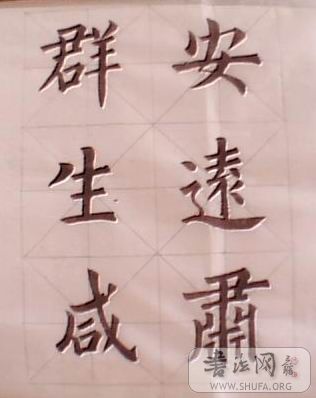 安遠肅
群生咸
書法网
WWW.SHUFA.ORG